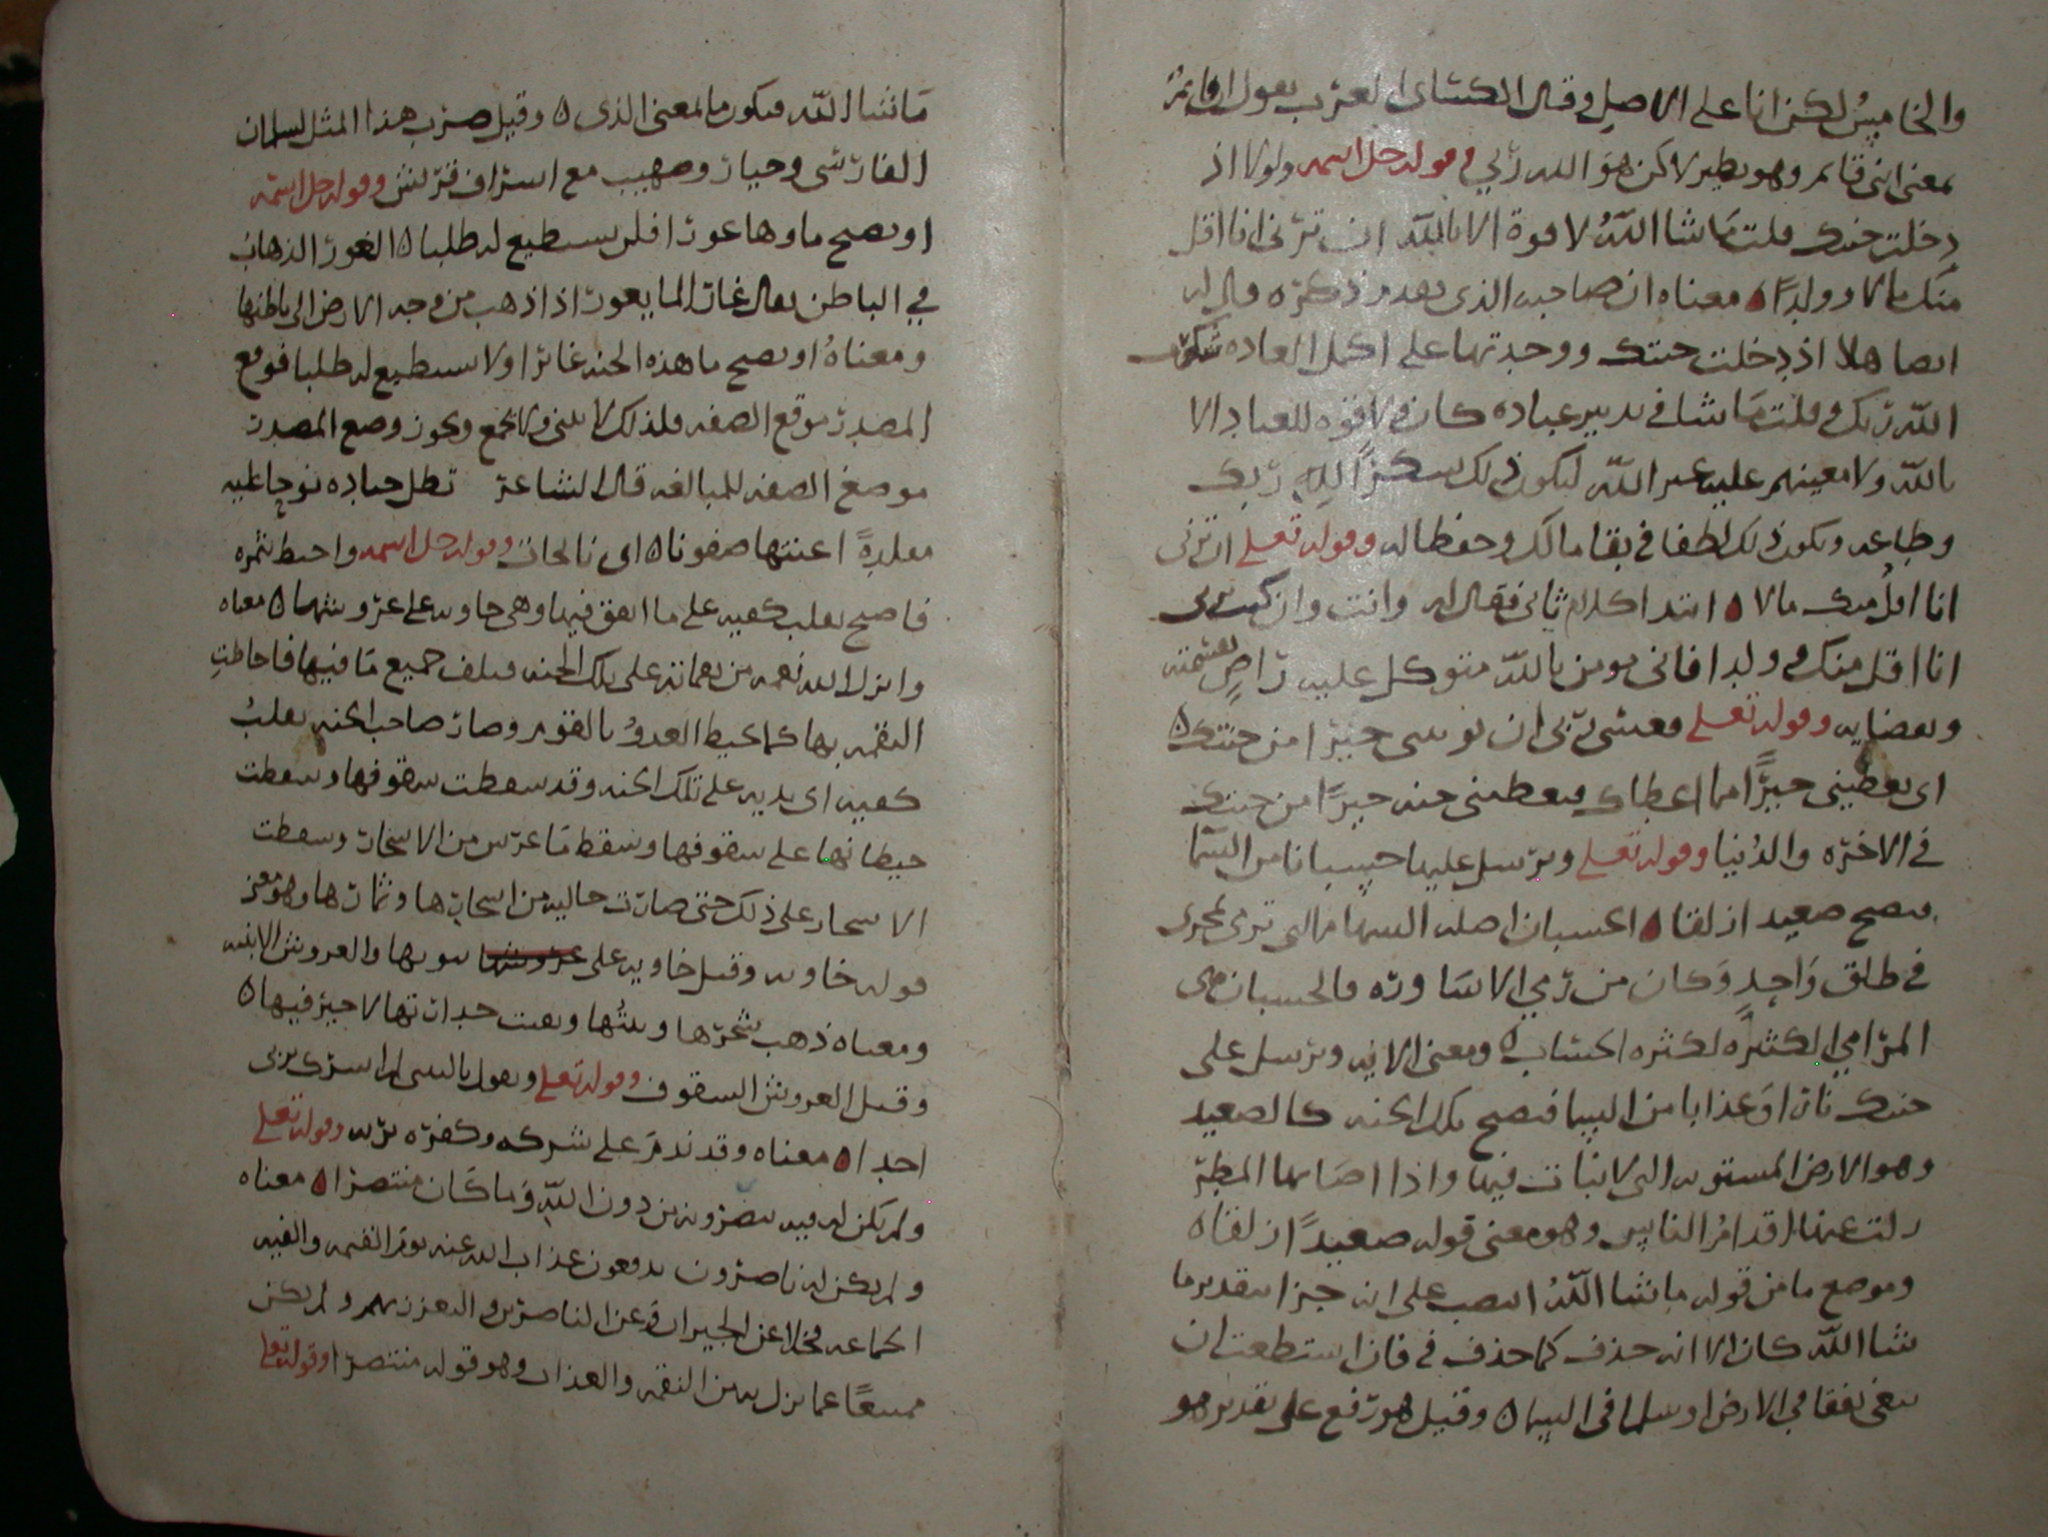 والخامس لكن انا على الاصل وقال الكسائي العرب يقول ان قائم
بمعنى اني قائم وهو نظير لاكن هو الله ربي وقوله جل اسمه ولولا اذ
دخلت جنتك قلت ما شا الله لا قوة الا بالله ان ترني انا اقل
منك مالا وولدا ه معناه ان صاحبه الذي تقدم ذكره قال له
ايضا هلا اذ دخلت جنتك ووجدتها على اكمل العاده شكرت
الله ربك وقلت ما شا في تدبير عباده كان ولا قوه للعباد الا
بالله ولا معينهم عليه غير الله ليكون ذلك شكرا لله ربك
وطاعه ويكون ذلك لطفا في بقا مالك وحفظا له وقوله تعلى ان ترني
انا اقل منك مالا ه ابتدا كلام ثاني فقال له وانت وان كنت ترى
انا اقل منك وولدا فاني مومن بالله متوكل عليه راض بقسمته
وبقضايه وقوله تعلى فعسى ربي ان يوتيني خيرا من جنتك ه
اي يعطيني خيرا مما اعطاك فيعطيني جنه خيرا من جنتك
في الاخره والدنيا وقوله تعلى ويرسل عليها حسبانا من السما
فتصبح صعيدا زلقا ه الحسبان اصله السهام التي ترمى لمجرى
في طلق واحد وكان من رمي الاساوره فالحسبان هي
المرامي الكثره لكثره الحساب ه ومعنى الايه ويرسل على
جنتك نارا او عذابا من السما فتصبح تلك الجنه كالصعيد
وهو الارض المستويه التي لا نبات فيها واذا اصابها المطر
زلت عنها اقدام الناس وهو معنى قوله صعيدا زلقا ه
وموضع ما من قوله ما شا الله النصب على انه جزا بتقدير ما
شا الله كان الا انه حذف كما حذف في فان استطعت ان
تبتغي نفقا في الارض او سلما في السما ه وقيل هو رفع على تقدير هو
ما شا الله فيكون ما بمعنى الذي ه وقيل ضرب هذا المثل لسلمان
الفارسي وخباب وصهيب مع اشراف قريش وقوله جل اسمه
او يصبح ماوها غورا فلن يستطيع له طلبا ه الغور الذهاب
في الباطن يقال غار الما يغور اذا ذهب من وجه الارض الى باطنها
ومعناه او يصبح ما هذه الجنه غائرا ولا تستطيع له طلبا فوقع
المصدر موقع الصفه فلذلك لا يثنى ولا يجمع ويكون وضع المصدر
موضع الصفه للمبالغه قال الشاعر تظل جياده نوحا عليه
مقلدة اعنتها صفونا ه اي نائحات وقوله جل اسمه واحيط بثمره
فاصبح يقلب كفيه على ما انفق فيها وهي خاويه على عروشها ه معناه
وانزل الله نقمه من نقماته على تلك الجنه فتلف جميع ما فيها فاحاطت
النقمه بها كما يحيط العدو بالقوم وصار صاحب الجنه يقلب
كفيه اي يديه على تلك الجنه وقد سقطت سقوفها وسقطت
حيطانها على سقوفها وسقط ما غرس من الاشجار وسقطت
الاشجار على ذلك حتى صارت خاليه من اشجارها وثمارها وهو معنى
قوله خاويه وقيل خاويه على عروشها بيوتها والعروش الابنيه
ومعناه ذهب شجرها وبنتها وبقيت جدارتها لا خير فيها ه
وقيل العروش السقوف وقوله تعلى ويقول يا ليتني لم اشرك بربي
احدا ه معناه وقد ندم على شركه وكفره بربه وقوله تعلى
ولم تكن له فيه ينصرونه من دون الله وما كان منتصرا ه معناه
ولم يكن له ناصرون يدفعون عذاب الله عنه يوم القيمه والفيه
الجماعه فخلا عن الجيران وعن الناصرين والتعزز بهم ولم يكن
ممتنعا عما نزل به من النقمه والعذاب وهو قوله منتصرا وقوله تعلى